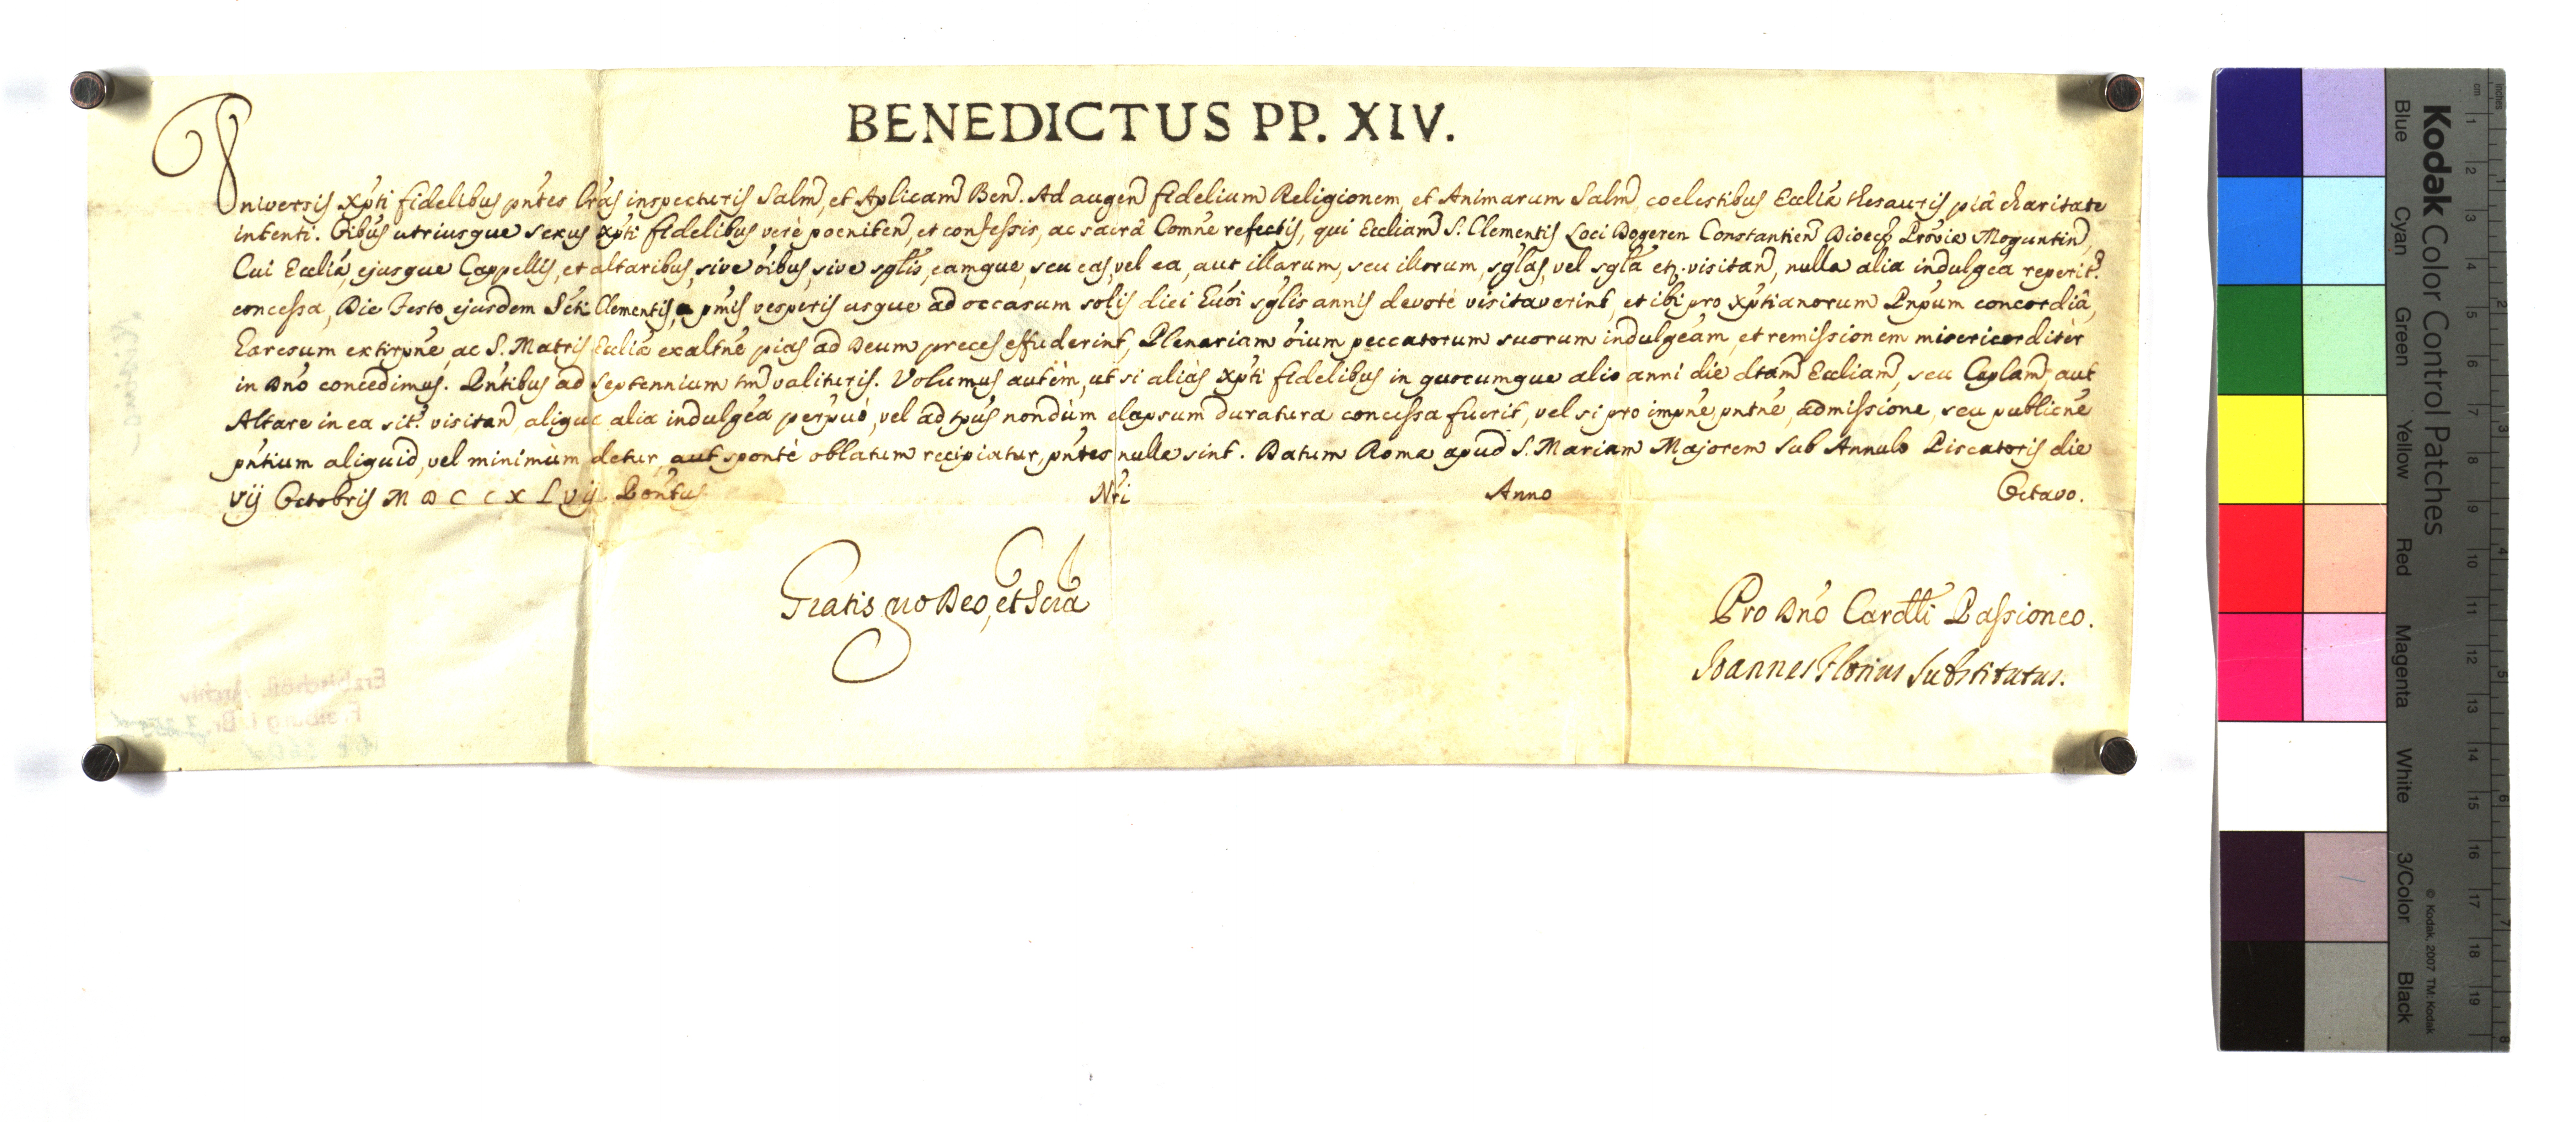 BENEDICTUS PP. XIV.
Universis Xpti fidelibus pntes lras inspecturis Salm, et Aplicam Ben. Ad augen fidelium Religionem, et Animarum Salm, coelestibus Eccliæ thesauris piâ charitate
intenti. Oibus utriusque sexus Xpti fidelibus verè poeniten, et confessis, ac sacrâ Comne refectis, qui Eccliam S. Clementis Loci Dogeren Constantien Dioeces Proviæ Moguntin,
Cui Eccliæ, ejusque Cappellis, et altaribus, sive oibus, sive sglis, eamque, seu eas, vel ea, aut illarum, seu illorum, sglas, vel sgla etz. visitan, nulla alia indulgea reperit.
concessa, Die Festo ejusdem Scti Clementis, a pmis vesperis usque ad occasum solis diei huoi sglis annis devotè visitaverint, et ibi pro Xptianorum Pnpum concordiâ,
haresum extirpne, ac S. Matris Eccliæ exaltne pias ad Deum preces effuderint, Plenariam oium peccatorum suorum indulgeam, et remissionem misericorditèr
in Dno concedimus. Pntibus ad Septennium tm valituris. Volumus autèm, ut si aliàs Xpti fidelibus in quocumque alio anni die dtam Eccliam, seu Caplam, aut
Altare in ea sit. visitan aliqua alia indulgea perpuò, vel ad tpus nondùm elapsum duratura concessa fuerit, vel si pro impne, pntne, admissione, seu publicne
pntium aliquid, vel minimùm detur, aut spontè oblatum recipiatur, pntes nullæ sint. Datum Romæ apud S. Mariam Majorem Sub Annulo Piscatoris die
vij Octobris M D C C X L vij. Pontus Nri Anno Octavo.
Gratis pro Deo, et Scra
Pro Dno Cardli Passioneo.
Joannes Florius Substitutus.
Erzbischöfl. Archiv
Freiburg i. Br.
Kodak Color Control Patches
Blue Cyan Green Yellow Red Magenta White 3/Color Black
© Kodak, 2007 TM: Kodak
cm 1 2 3 4 5 6 7 8 9 10 11 12 13 14 15 16 17 18 19
inches 2 3 4 5 6 7 8